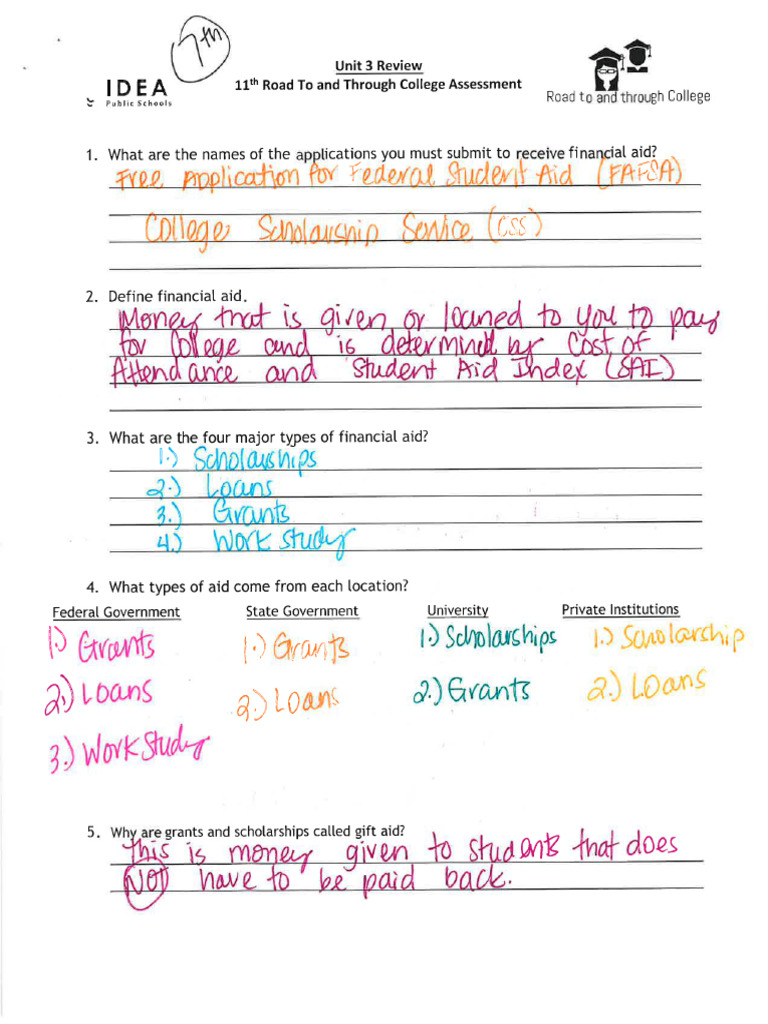 7th
IDEA
Public Schools
Unit 3 Review
11th Road To and Through College Assessment
Road to and through College
1. What are the names of the applications you must submit to receive financial aid?
Free Application for Federal Student Aid (FAFSA)
College Scholarship Service (CSS)
2. Define financial aid.
Money that is given or loaned to you to pay
for College and is determined by Cost of
Attendance and Student Aid Index (SAI)
3. What are the four major types of financial aid?
1.) Scholarships
2.) Loans
3.) Grants
4.) Work study
4. What types of aid come from each location?
Federal Government State Government University Private Institutions
1.) Grants 1.) Grants 1.) Scholarships 1.) Scholarship
2.) Loans 2.) Loans 2.) Grants 2.) Loans
3.) Work Study
5. Why are grants and scholarships called gift aid?
This is money given to students that does
NOT have to be paid back.